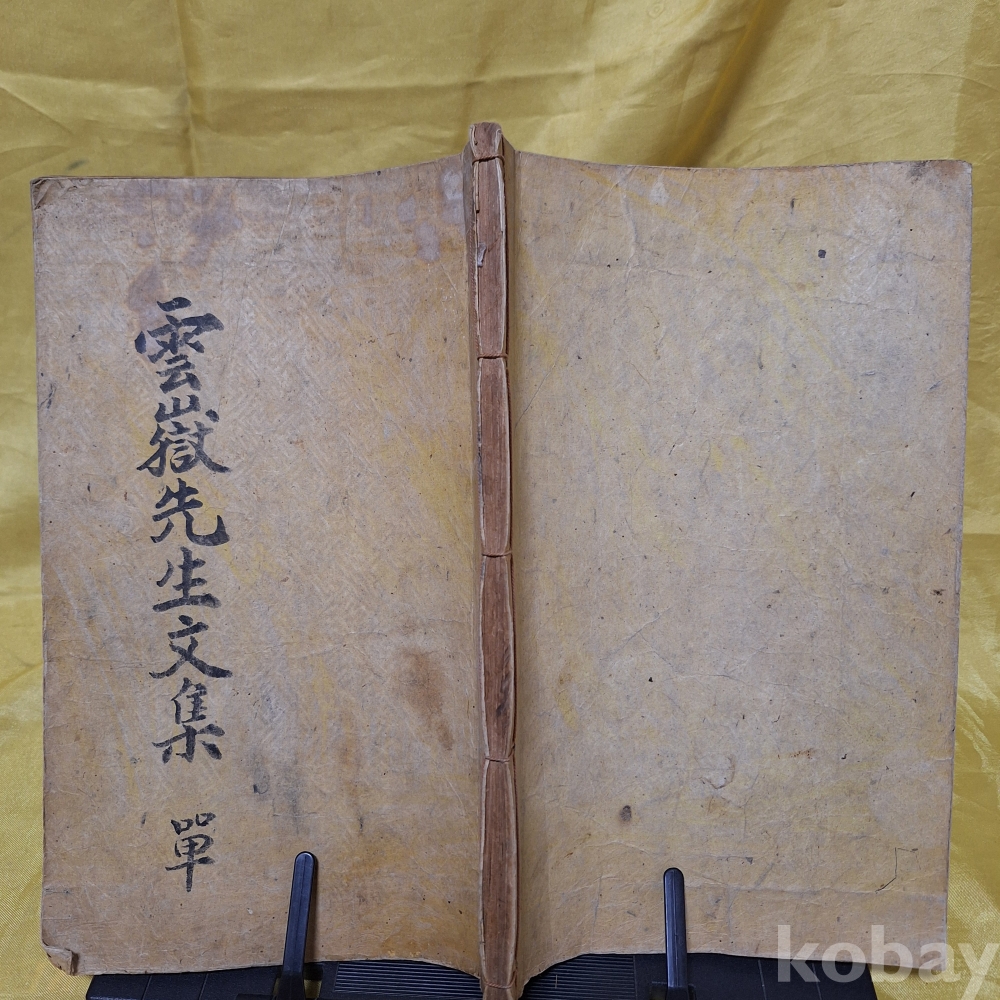 雲嶽先生文集 單
kobay